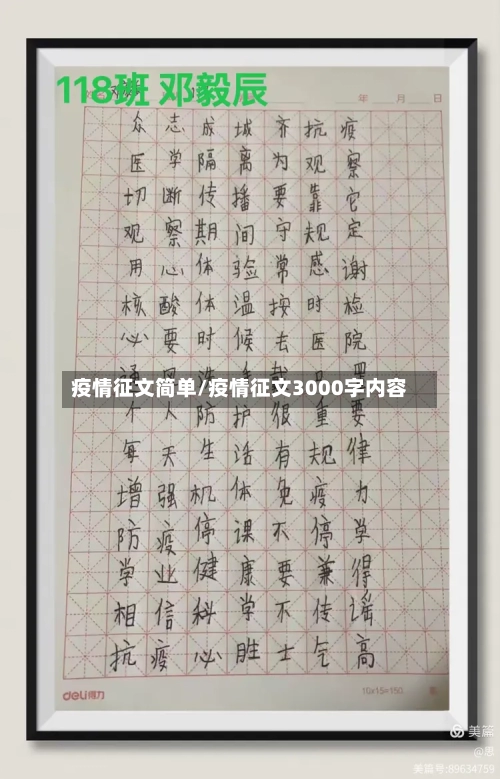 118班 邓毅辰
年 月 日
众志成城齐抗疫
医学隔离为观察
切断传播要靠它
观察期间守规定
用心体验常感谢
核酸体温按时检
必要时候去医院
疫情征文简单/疫情征文3000字内容
个人防护很重要
每天生活有规律
增强机体免疫力
防疫停课不停学
学业健康要兼得
相信科学不传谣
抗疫必胜士气高
deli得力
10x15=150
美篇
@恩
美篇号:89634759